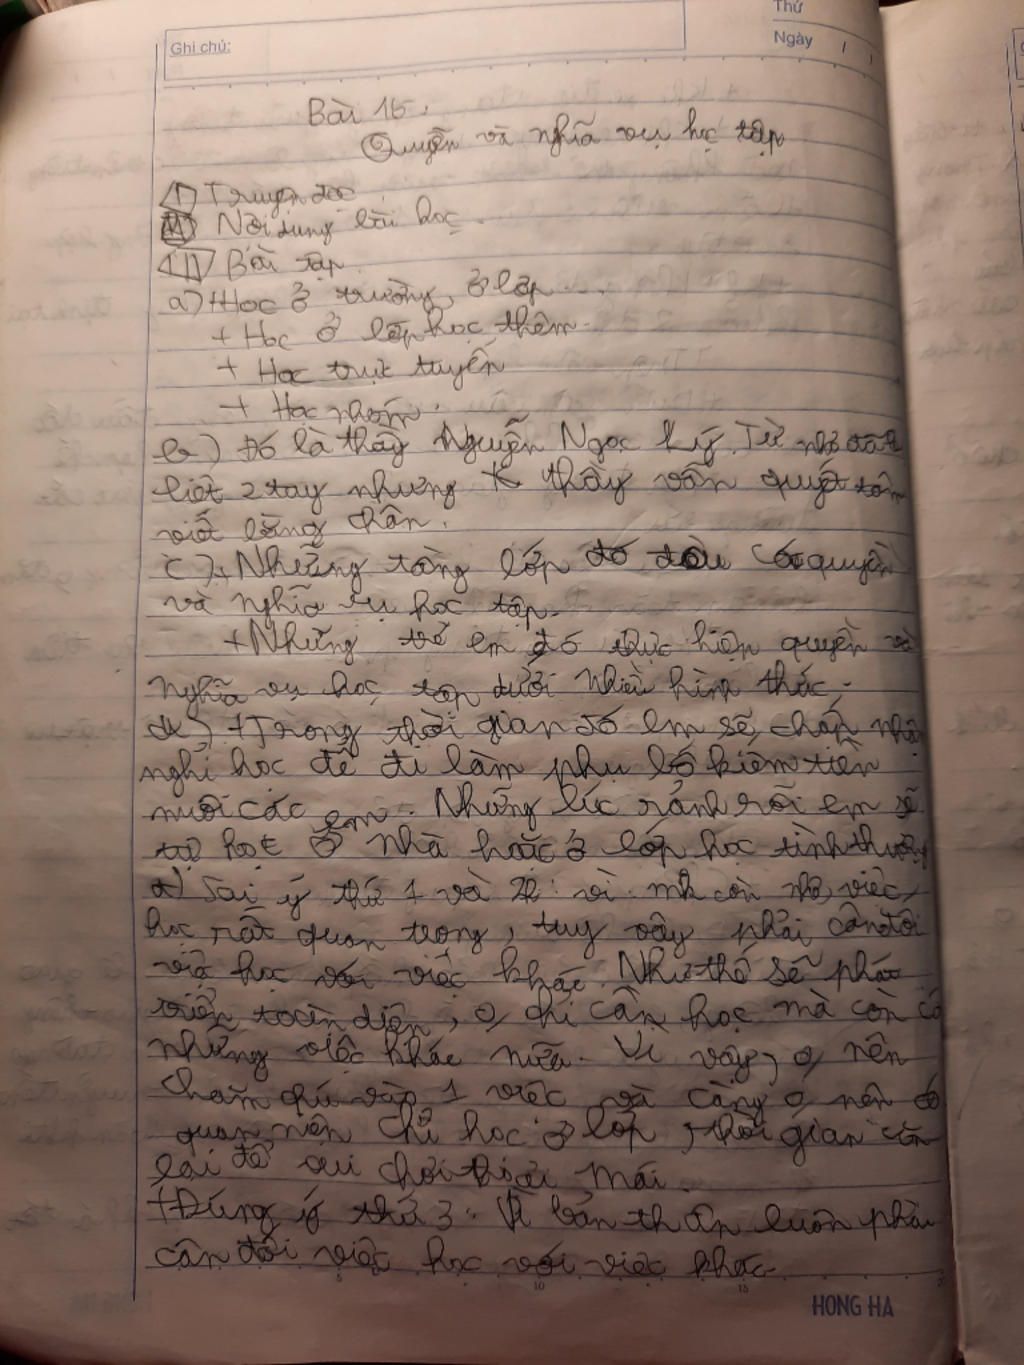 Ghi chú:
Thứ
Ngày / /
Bài 16.
Quyền và nghĩa vụ học tập
I Truyện đọc
II Nội dung bài học.
III Bài tập
a) + Học ở trường, ở lớp
+ Học ở lớp học thêm.
+ Học trực tuyến
+ Học nhóm.
b) Đó là thầy Nguyễn Ngọc Ký. Từ nhỏ đã
liệt 2 tay nhưng thầy vẫn quyết tâm
viết bằng chân.
c) + Những tầng lớp đó đều có quyền
và nghĩa vụ học tập.
+ Những trẻ em đó thực hiện quyền và
nghĩa vụ học tập dưới nhiều hình thức.
+ Trong thời gian đó em sẽ chấp nhận
nghỉ học để đi làm phụ bố kiếm tiền
nuôi các em. Những lúc rảnh rỗi em sẽ
tự học ở nhà hoặc ở lớp học tình thương
Sai ý thứ 1 và 2: vì mk còn nhỏ, việc
học rất quan trọng, tuy vậy phải cân đối
việc học với việc khác. Như thế sẽ phát
triển toàn diện, o chỉ cần học mà còn có
những việc khác nữa. Vì vậy, o nên
chăm chú vào 1 việc và càng o nên có
quan niệm chỉ học ở lớp, thời gian còn
lại để vui chơi thoải mái.
+ Đúng ý thứ 3. Vì bản thân luôn phải
cân đối việc học với việc khác.
HONG HA